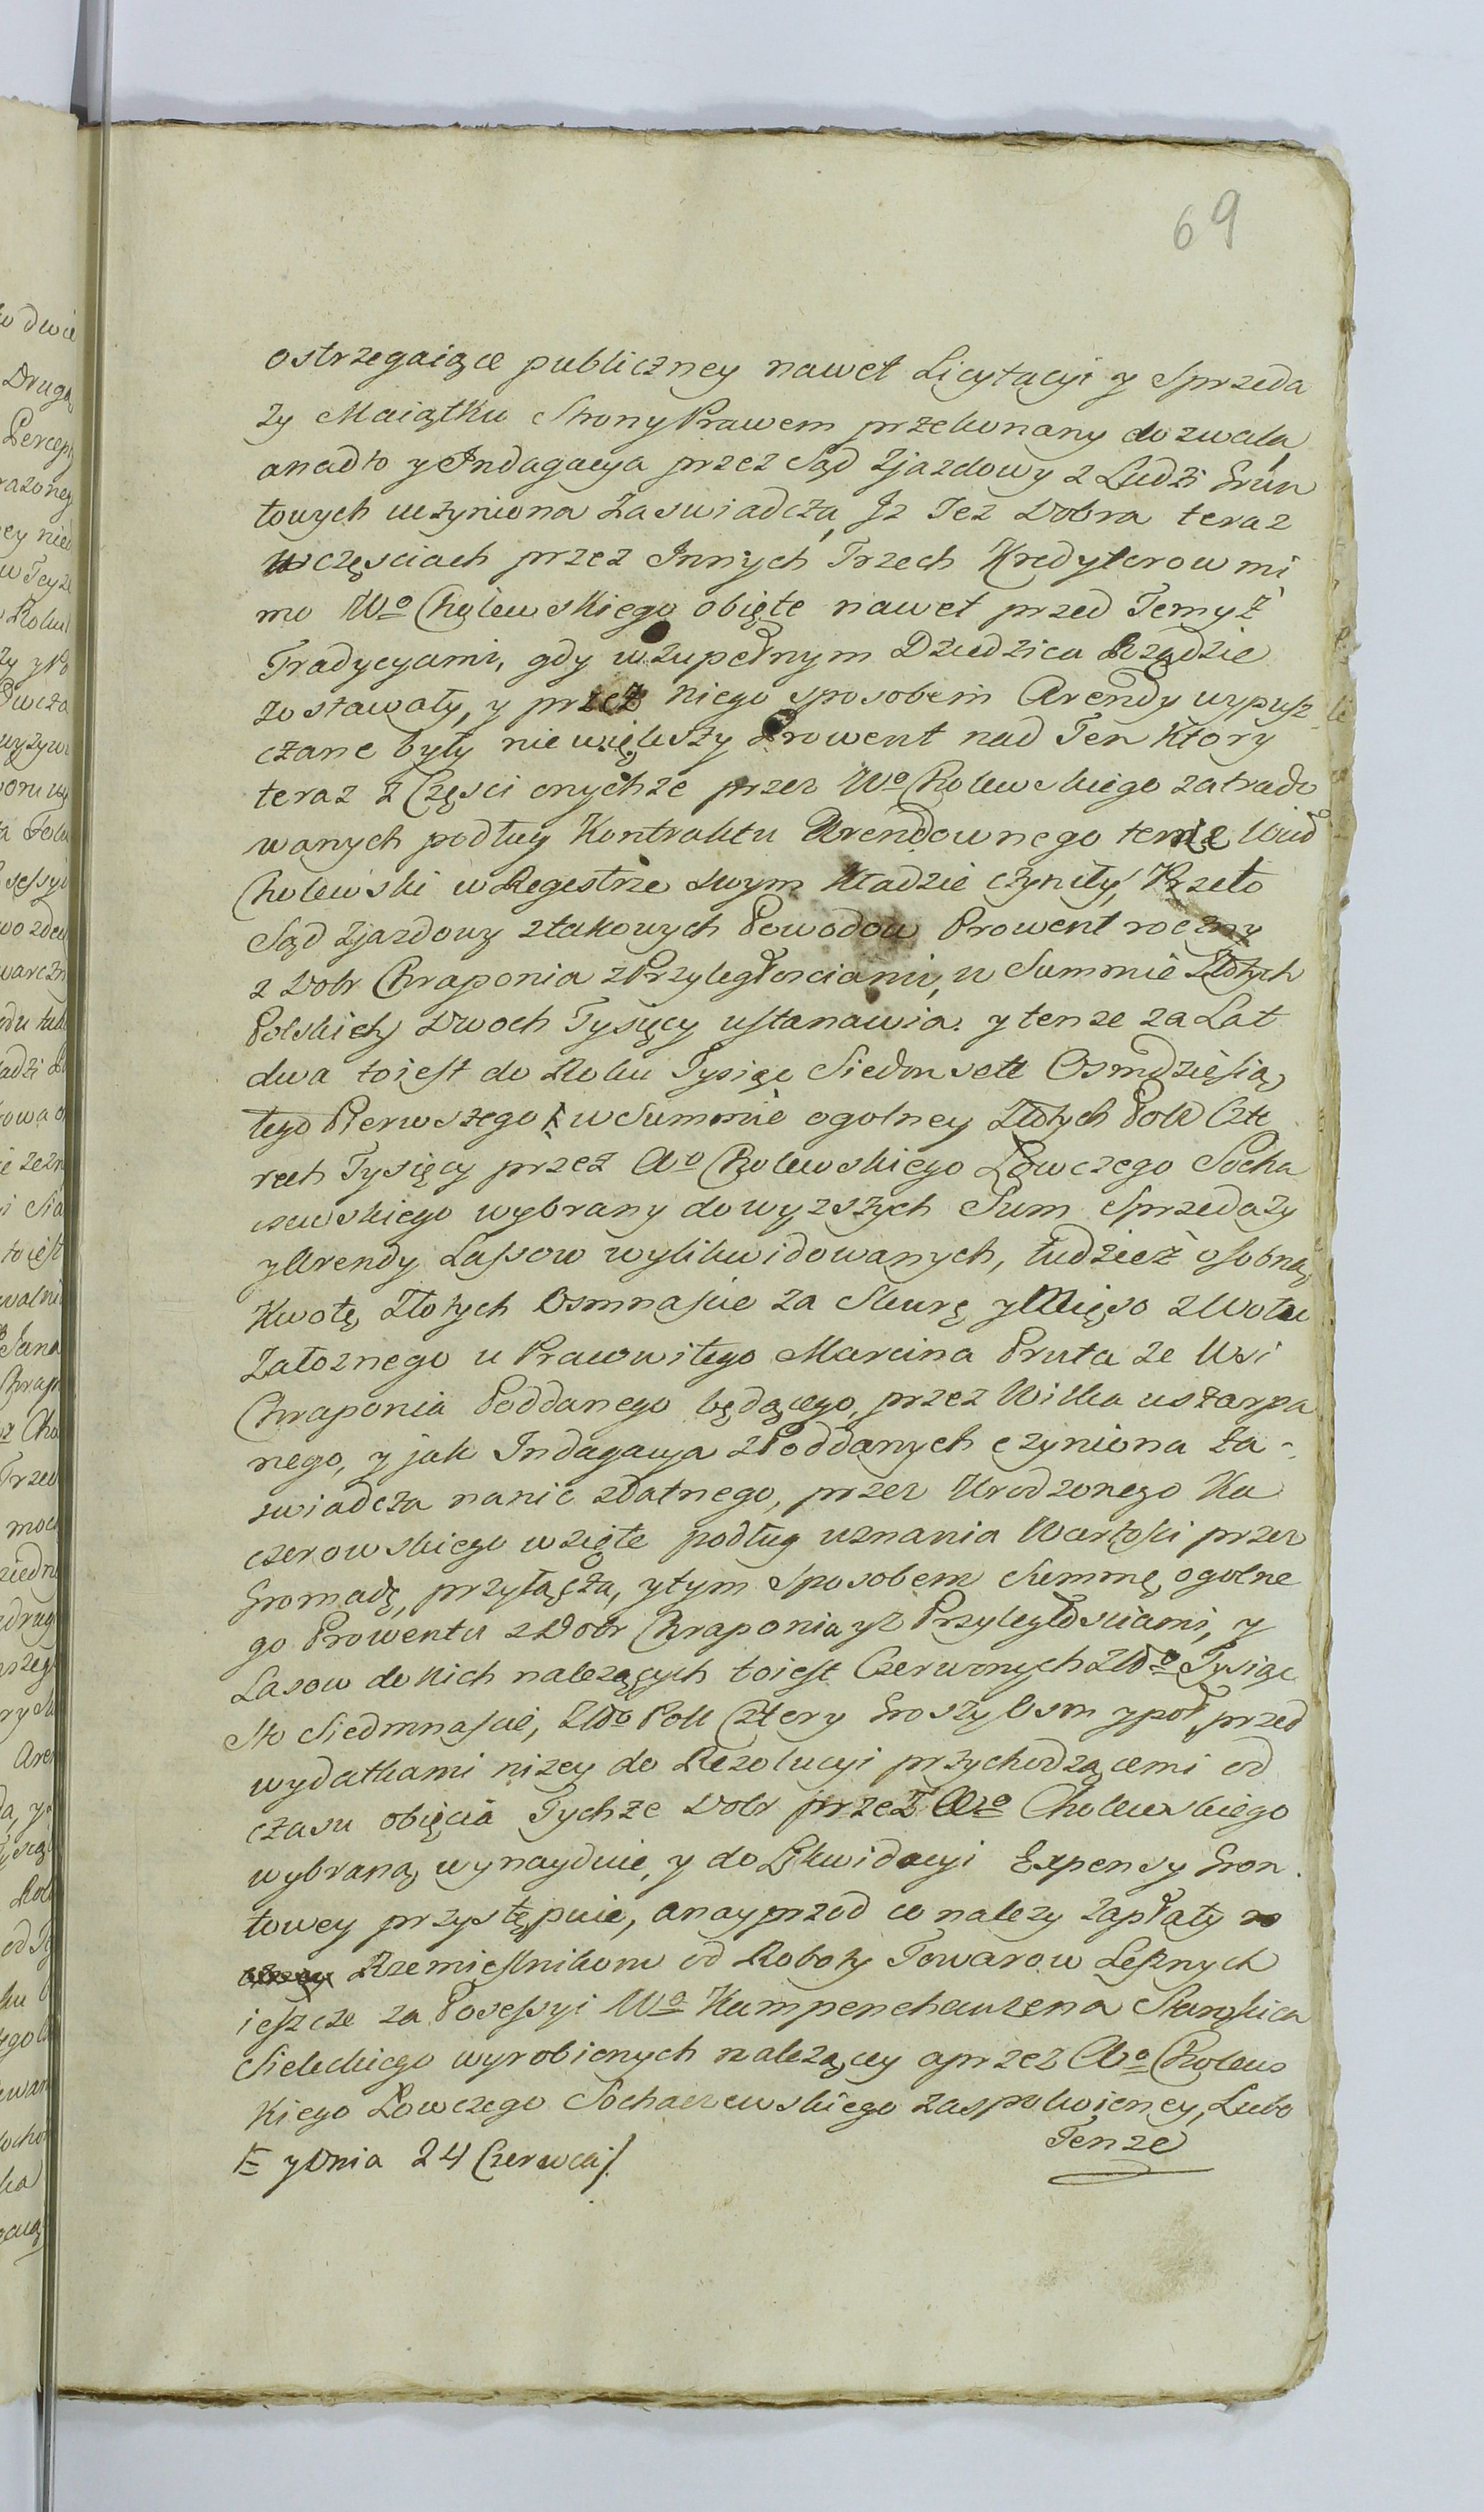 69
ostrzegaiące publiczney nawet Licytacyi y Sprzeda
ży Maiątku Strony Prawem przekonany dozwala,
anadto y Indagacya przez Sąd Zjazdowy z Ludzi Grun
towych uczyniona zaswiadcza, Jz Też Dobra teraz
wczęsciach przez Innych Trzech Kredytorow mi
mo Wo Cholewskiego obięte nawet przed Temyż
Tradycyami, gdy wzupełnym Dziedzica Rządzie
zostawały, y przez niego sposobem Arendy wypusz
czane były niewiększy Prowent nad Ten ktory
teraz z Częsci onychże przez Wo Cholewskiego zatrado
wanych podług Kontraktu Arendownego tenże
Cholewski w Regestrze swym kładzie czyniły, Przeto
Sąd Zjazdowy ztakowych Powodow Prowent roczny
z Dobr Chraponia zPrzyległosciami, w Summie Złotych
Polskich Dwoch Tysięcy ustanawia. y tenże za Lat
dwa toiest do Roku Tysiąc Siedmset Osmdziesią
tego Pierwszego w Summie ogolney Złotych Pols Czte
rech Tysięcy przez Wo Cholewskiego Łowczego Socha
czewskiego wybrany dowyższych Sum Sprzedaży
yArendy Lassow wylikwidowanych, tudzież osobną
Kwotę Złotych Osmnascie za Skurę yMięso zWołu
Załoznego u Prawowitego Marcina Pruta ze Wsi
Chraponia Poddanego będącego, przez Wilka uszarpa
nego, y jak Indagacya zPoddanych czyniona za-
swiadcza nanic zdatnego, przez Urodzonego Ka
czorowskiego wzięte podług uznania Wartosci przez
Gromadę, przyłącza, ytym sposobem Summę ogolne
go Prowentu zDobr Chraponia yz Przyległosciami, y
Lasow do Nich należących toiest Czerwonych Złto Tysiąc
Sto Siedmnascie, Złto Pols Cztery Groszy Osm ypoł przed
wydatkami niżey do Rezolucyi przychodzącemi od
czasu obięcia Tychże Dobr przez Wo Cholewskiego
wybraną wynayduie, y do Likwidacyi Expensy Gron
towey przystępuie, anayprzod co należy zapłaty
Rzemieslnikom od Roboty Towarow Lesnych
ieszcze za Possessyi Wo Kampenhauzena
wyrobionych należący aprzez Wo Cholews
kiego Łowczego Sochaczewskiego zaspokoioney, Lubo
Tenże
y Dnia 24 Czerwca